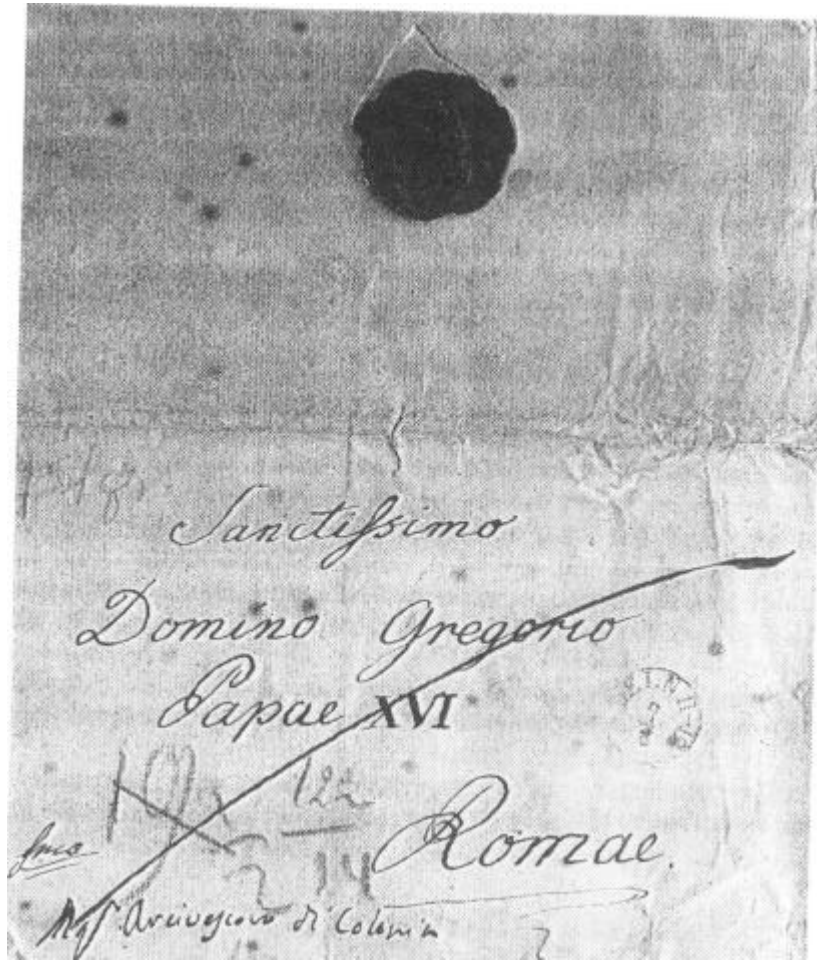 Sanctissimo
Domino Gregorio
Papae XVI
122
Romae.
14
Arcivescovo di Colonia